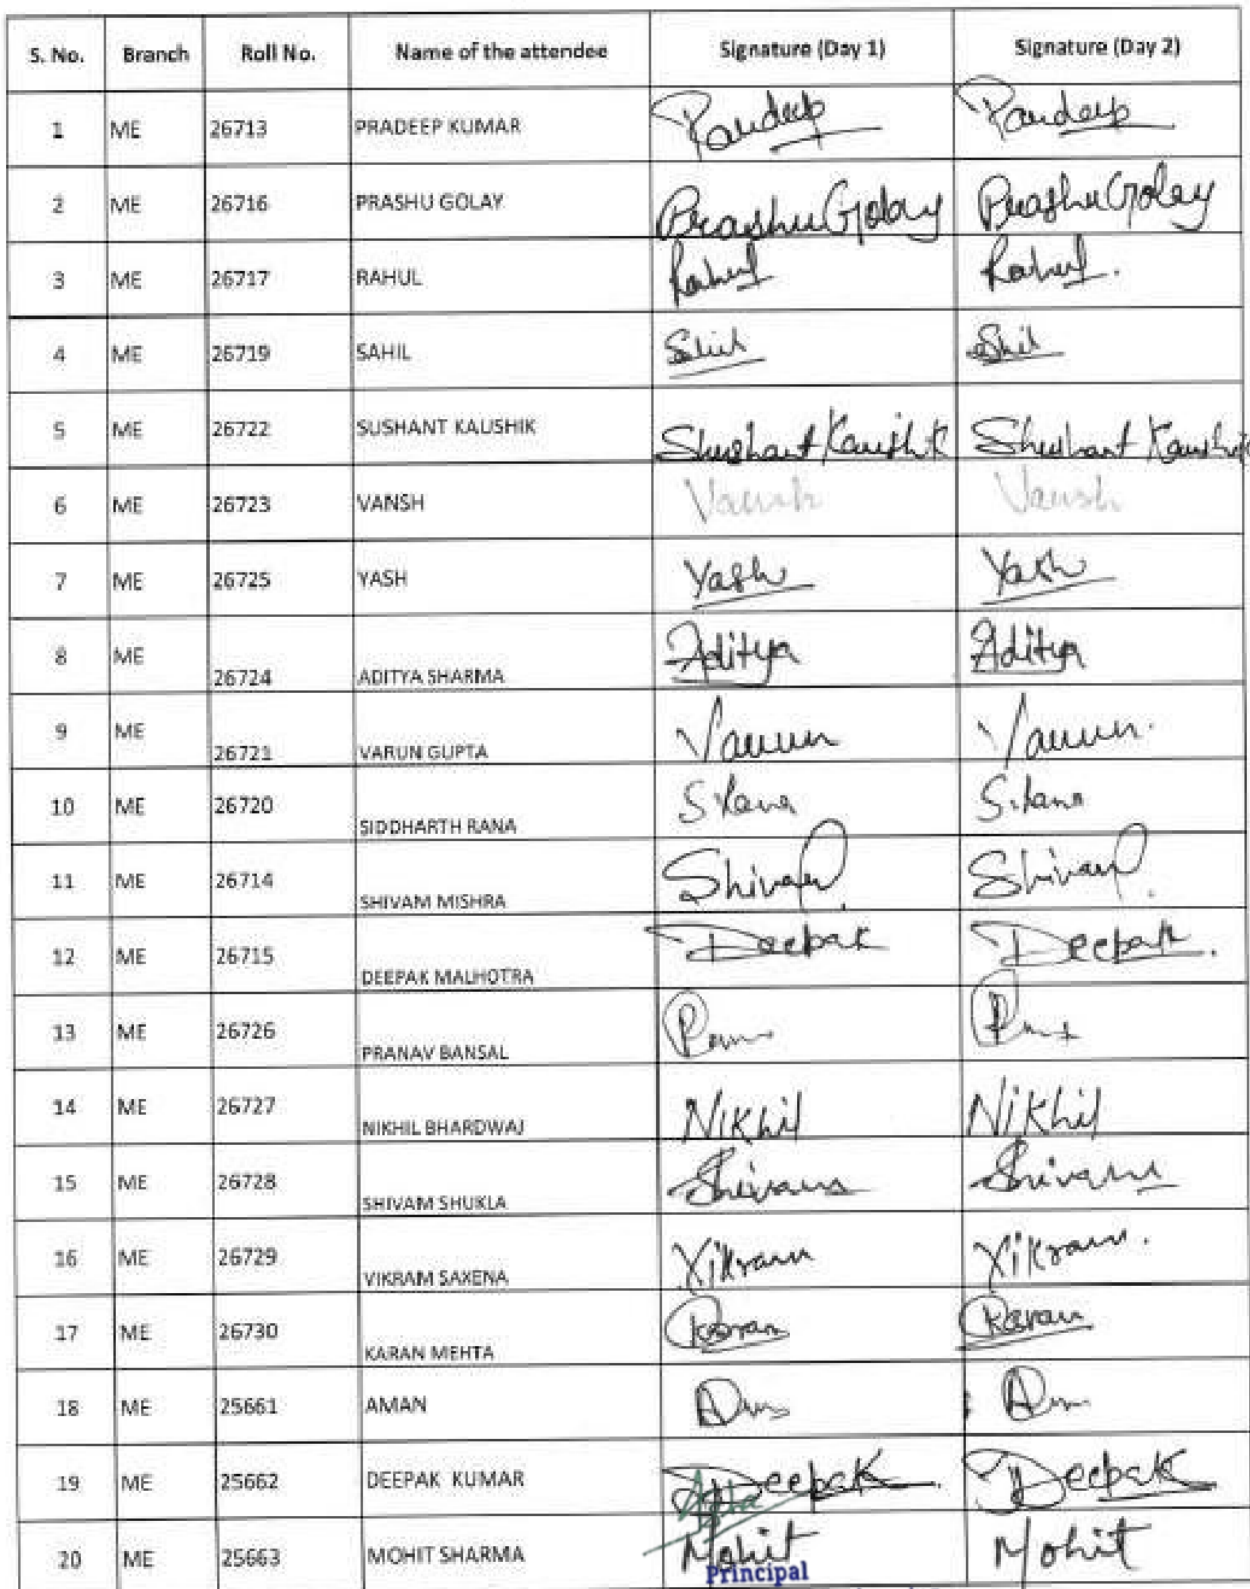 S. No. Branch Roll No. Name of the attendee Signature (Day 1) Signature (Day 2)
1 ME 26713 PRADEEP KUMAR Pardeep Pardeep
2 ME 26716 PRASHU GOLAY Prashu Golay Prashu Golay
3 ME 26717 RAHUL Rahul Rahul.
4 ME 26719 SAHIL
5 ME 26722 SUSHANT KAUSHIK Shushant Kaushik Shushant Kaushik
6 ME 26723 VANSH Vansh Vansh
7 ME 26725 YASH Yash Yash
8 ME 26724 ADITYA SHARMA Aditya Aditya
9 ME 26721 VARUN GUPTA Varun Varun.
10 ME 26720 SIDDHARTH RANA S. Rana S. Rana
11 ME 26714 SHIVAM MISHRA Shivam Shivam
12 ME 26715 DEEPAK MALHOTRA Deepak Deepak.
13 ME 26726 PRANAV BANSAL
14 ME 26727 NIKHIL BHARDWAJ Nikhil Nikhil
15 ME 26728 SHIVAM SHUKLA Shivam Shivam
16 ME 26729 VIKRAM SAXENA Vikram Vikram.
17 ME 26730 KARAN MEHTA Karan Karan
18 ME 25661 AMAN
19 ME 25662 DEEPAK KUMAR Deepak Deepak
20 ME 25663 MOHIT SHARMA Mohit Mohit
Principal